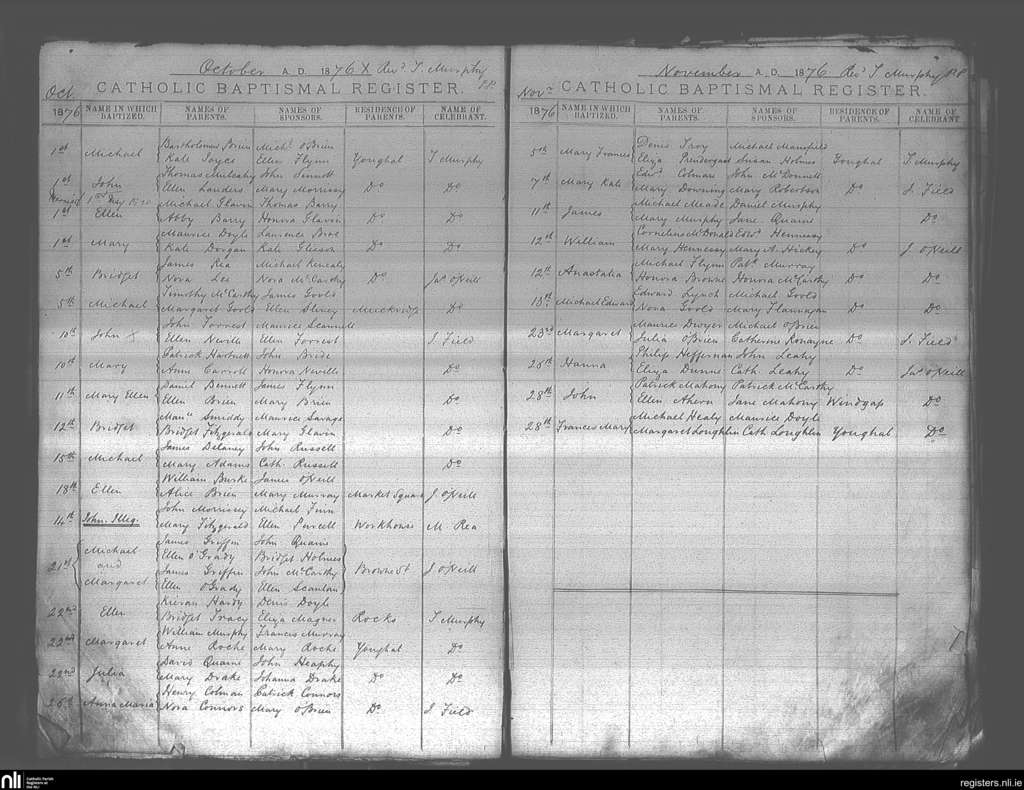 October A.D. 1876 X Revd. T. Murphy P.P.
Oct.
CATHOLIC BAPTISMAL REGISTER.
1876 NAME IN WHICH BAPTIZED. NAMES OF PARENTS. NAMES OF SPONSORS. RESIDENCE OF PARENTS. NAME OF CELEBRANT.
Bartholomew Brien Michl. O'Brien
1st Michael Kate Joyce Ellen Flynn Youghal T Murphy
Thomas Mulcahy John Sinnott
1st John Ellen Landers Mary Morrissey Do Do
Michael Glavin Thomas Barry
1st Ellen Abby Barry Honora Glavin Do Do
Maurice Doyle Laurence
1st Mary Kate Dorgan Kate Gleeson Do Do
James Rea Michael Kenealy
5th Bridget Nora Lee Nora McCarthy Do Jas. O'Neill
Timothy McCarthy James Goold
5th Michael Margaret Goold Ellen Muckridge Do
John Forrest Maurice Scannell
10th John X Ellen Neville Ellen Forrest J Field
Patrick Hartnett John Bride
10th Mary Anne Carroll Honora Neville Do
Daniel Bennett James Flynn
11th Mary Ellen Ellen Brien Mary Brien Do
Smiddy Maurice Savage
12th Bridget Bridget Fitzgerald Mary Glavin Do
James Delaney John Russell
15th Michael Mary Adams Cath. Russell Do
William Burke James O'Neill
18th Ellen Alice Brien Mary Murray Market Square J O'Neill
John Morrissey Michael
14th John. Illeg. Mary Fitzgerald Ellen Purcell Workhouse M. Rea
James Griffin John Quaine
Michael Ellen O'Grady Bridget Holmes
21st and James Griffin John McCarthy Browne St J O'Neill
Margaret Ellen O'Grady Ellen Scanlan
Kieran Hardy Denis Doyle
22nd Ellen Bridget Tracy Eliza Magner Rocks T Murphy
William Murphy Francis Murray
22nd Margaret Anne Roche Mary Roche Youghal Do
David Quaine John Heaphy
22nd Julia Mary Drake Johanna Drake Do Do
Henry Colman Patrick Connors
25th Anna Maria Nora Connors Mary O'Brien Do J Field
November A.D. 1876 Revd. T Murphy P.P.
Novr.
CATHOLIC BAPTISMAL REGISTER.
1876 NAME IN WHICH BAPTIZED. NAMES OF PARENTS. NAMES OF SPONSORS. RESIDENCE OF PARENTS. NAME OF CELEBRANT
Denis Troy Michael Mansfield
5th Mary Frances Eliza Prendergast Susan Holmes Youghal T Murphy
Edwd. Colman John McDonnell
7th Mary Kate Mary Downing Mary Robertson Do J. Field
Michael Meade Daniel Murphy
11th James Mary Murphy Jane Quaine Do
Cornelius McDonald Edwd. Hennessy
12th William Mary Hennessy Mary A. Hickey Do J. O'Neill
Michael Flynn Patk. Murray
12th Anastatia Honora Browne Honora McCarthy Do Do
Edward Lynch Michael Goold
13th Michael Edward Nora Goold Mary Flannagan Do Do
Maurice Dwyer Michael O'Brien
23rd Margaret Julia O'Brien Catherine Ronayne Do J. Field
Philip Heffernan John Leahy
25th Hanna Eliza Dunne Cath. Leahy Do Jas. O'Neill
Patrick Mahony Patrick McCarthy
28th John Ellen Ahern Jane Mahony Windgap Do
Michael Healy Maurice Doyle
28th Frances Mary Margaret Loughlin Cath Loughlin Youghal Do
nli Catholic Parish Registers at the NLI
registers.nli.ie